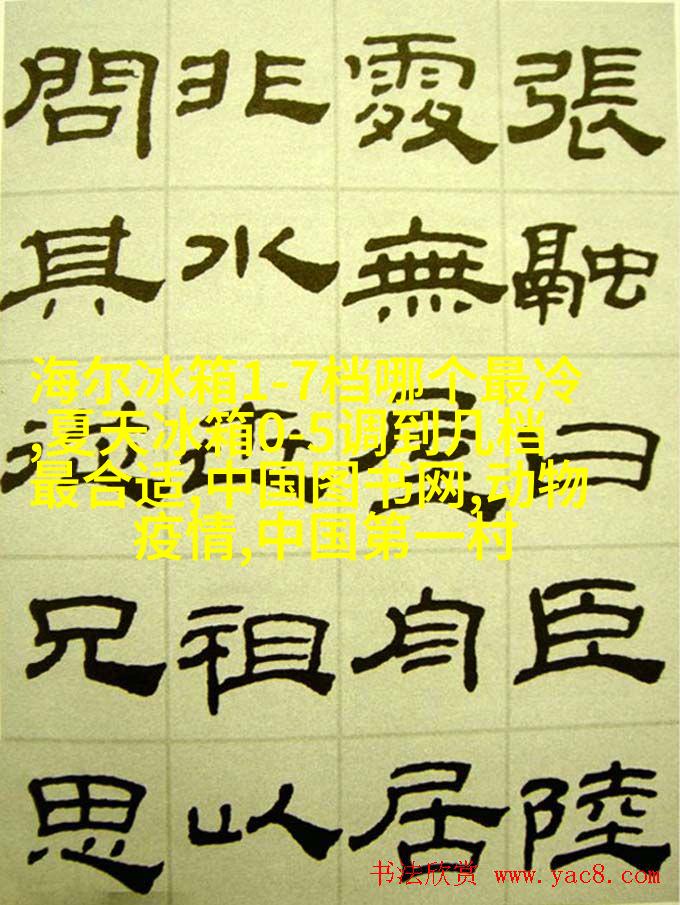 張融曰臣陸
處無屋舟居
非水祖以
問其兄思
海尔冰箱1-7档哪个最冷
,夏天冰箱0-5调到几档
最合适,中国图书网,动物
疫情,中国第一村
书法欣赏 www.yac8.com